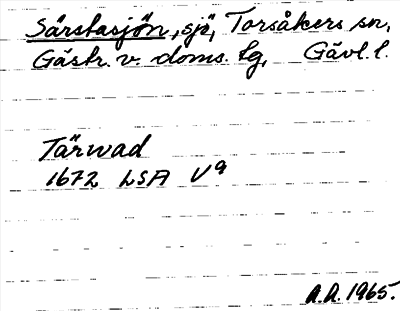 Särstasjön, sjö, Torsåkers sn,
Gästr. v. doms. tg, Gävl. l.
Tärwad
1672 LSA V9
A.A. 1965.